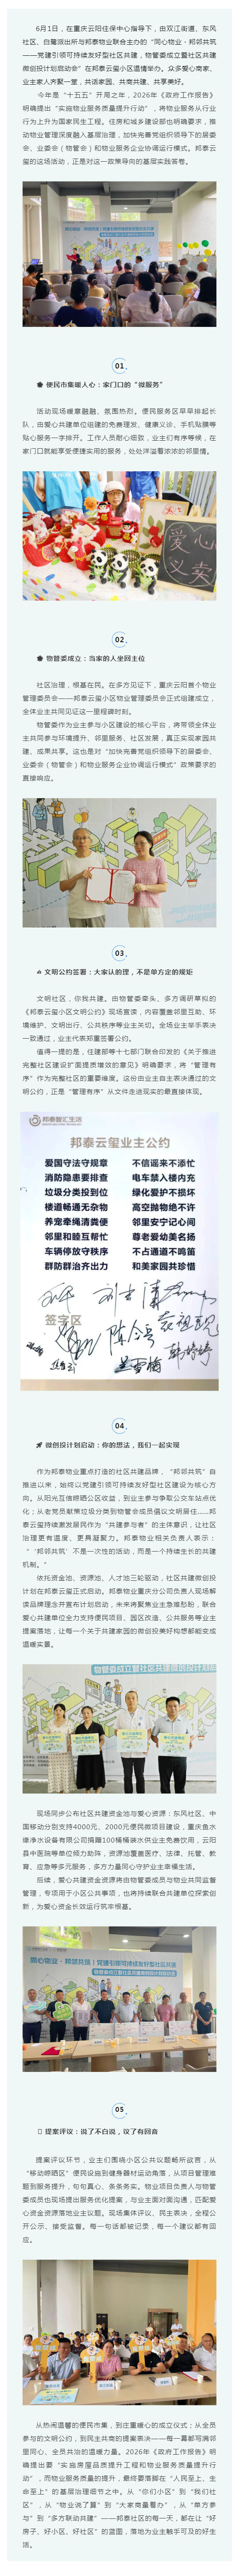 6月1日，在重庆云阳住保中心指导下，由双江街道、东风
社区、白鹭派出所与邦泰物业联合主办的“同心物业·邦邻共筑
——党建引领可持续友好型社区共建，物管委成立暨社区共建
微创投计划启动会”在邦泰云玺小区温情举办。众多爱心商家、
业主家人齐聚一堂，共话家园、共商共建、共享美好。
今年是“十五五”开局之年，2026年《政府工作报告》
明确提出“实施物业服务质量提升行动”，将物业服务从行业
行为上升为国家民生工程。住房和城乡建设部也明确要求，推
动物业管理深度融入基层治理，加快完善党组织领导下的居委
会、业委会（物管会）和物业服务企业协调运行模式。邦泰云
玺的这场活动，正是对这一政策导向的基层实践答卷。
01
便民市集暖人心：家门口的“微服务”
活动现场暖意融融、氛围热烈。便民服务区早早排起长
队，由爱心共建单位组建的免费理发、健康义诊、手机贴膜等
贴心服务一字排开。工作人员耐心细致，业主们有序等候，在
家门口就能享受便捷实用的服务，处处洋溢着浓浓的邻里情。
爱心
义卖
02
物管委成立：当家的人坐回主位
社区治理，根基在民。在多方见证下，重庆云阳首个物业
管理委员会——邦泰云玺小区物业管理委员会正式组建成立，
全体业主共同见证这一里程碑时刻。
物管委作为业主参与小区建设的核心平台，将带领全体业
主共同参与环境提升、邻里服务、社区发展，真正实现家园共
建、成果共享。这也是对“加快完善党组织领导下的居委会、
业委会（物管会）和物业服务企业协调运行模式”政策要求的
直接响应。
03
文明公约签署：大家认的理，不是单方定的规矩
文明社区，你我共建。由物管委牵头、多方调研草拟的
《邦泰云玺小区文明公约》现场宣读，内容覆盖邻里互助、环
境维护、文明出行、公共秩序等业主关切。全场业主举手表决
一致通过，业主代表郑重签署公约。
值得一提的是，住建部等十七部门联合印发的《关于推进
完整社区建设扩面提质增效的意见》明确要求，将“管理有
序”作为完整社区的重要维度。这份由业主自主表决通过的文
明公约，正是“管理有序”从文件走进现实的最直接体现。
邦泰智汇生活
邦泰云玺业主公约
爱国守法守规章 不信谣来不添忙
消防隐患要排查 电车禁入楼内充
垃圾分类投到位 绿化爱护不损坏
楼道畅通无杂物 高空抛物绝不许
养宠牵绳清粪便 邻里安宁记心间
邻里和睦互帮忙 尊老爱幼美名扬
车辆停放守秩序 不占通道不鸣笛
群防群治齐出力 和美家园共珍惜
签字区
04
微创投计划启动：你的想法，我们一起实现
作为邦泰物业重点打造的社区共建品牌，“邦邻共筑”自
推进以来，始终以党建引领可持续友好型社区建设为核心方
向。从阳光互信晾晒公区收益，到业主参与争取公交车站点优
化；从老党员献策垃圾分类到物管会成员倡议文明居住……邦
泰云玺持续激发居民作为“共建参与者”的主体意识，让社区
治理更有温度、更具凝聚力。邦泰物业相关负责人表示：
“‘邦邻共筑’不是一次性的活动，而是一个持续生长的共建
机制。”
依托资金池、资源池、人才池三轮驱动，社区共建微创投
计划在邦泰云玺正式启动。邦泰物业重庆分公司负责人现场解
读品牌理念并宣布计划启动，未来将聚焦业主急难愁盼，联合
爱心共建单位全力支持便民项目、园区改造、公共服务等业主
提案落地，让每一个关于共建家园的微创投美好构想都能变成
温暖实景。
物管委成立暨社区共建微创投计划启动
现场同步公布社区共建资金池与爱心资源：东风社区、中
国移动分别支持4000元、2000元便民微项目建设，重庆鱼水
缘净水设备有限公司捐赠100桶桶装水供业主免费饮用，云阳
县中医院等单位倾力助阵，资源池覆盖医疗、法律、托管、教
育、应急等多元服务，多方力量同心守护业主幸福生活。
后续，爱心共建资金资源将由物管委成员与物业共同监督
管理，专项用于小区公共事项，也将持续联合共建单位探索创
新，为爱心资金长效运行筑牢根基。
同心物业·邦邻共筑｜党建引领可持续友好型社区共建
物管委成立暨社区共建微创投计划启动会
05
提案评议：说了不白说，议了有回音
提案评议环节，业主们围绕小区公共议题畅所欲言，从
“移动晾晒区”便民设施到健身器材运动角落，从项目管理难
题到服务提升，句句真心、条条务实。物业项目负责人与物管
委成员也现场提出服务优化提案，与业主面对面沟通，匹配爱
心资金资源落地业主议题。现场集体评议、民主表决，全程公
开公示、接受监督。每一句话都被记录，每一个建议都有回
应。
从热闹温馨的便民市集，到庄重暖心的成立仪式；从全员
参与的文明公约，到民主共商的提案表决——每一幕都写满邻
里同心、全员共治的温暖力量。2026年《政府工作报告》明
确提出要“实施房屋品质提升工程和物业服务质量提升行
动”，而物业服务质量的提升，最终要落脚在“人民至上、生
命至上”的基层治理细节之中。从“你们小区”到“我们社
区”，从“物业说了算”到“大家商量着办”，从“单方参
与”到“多方联动共建”——邦泰社区的每一天，都在让“好
房子、好小区、好社区”的蓝图，落地为业主触手可及的好生
活。